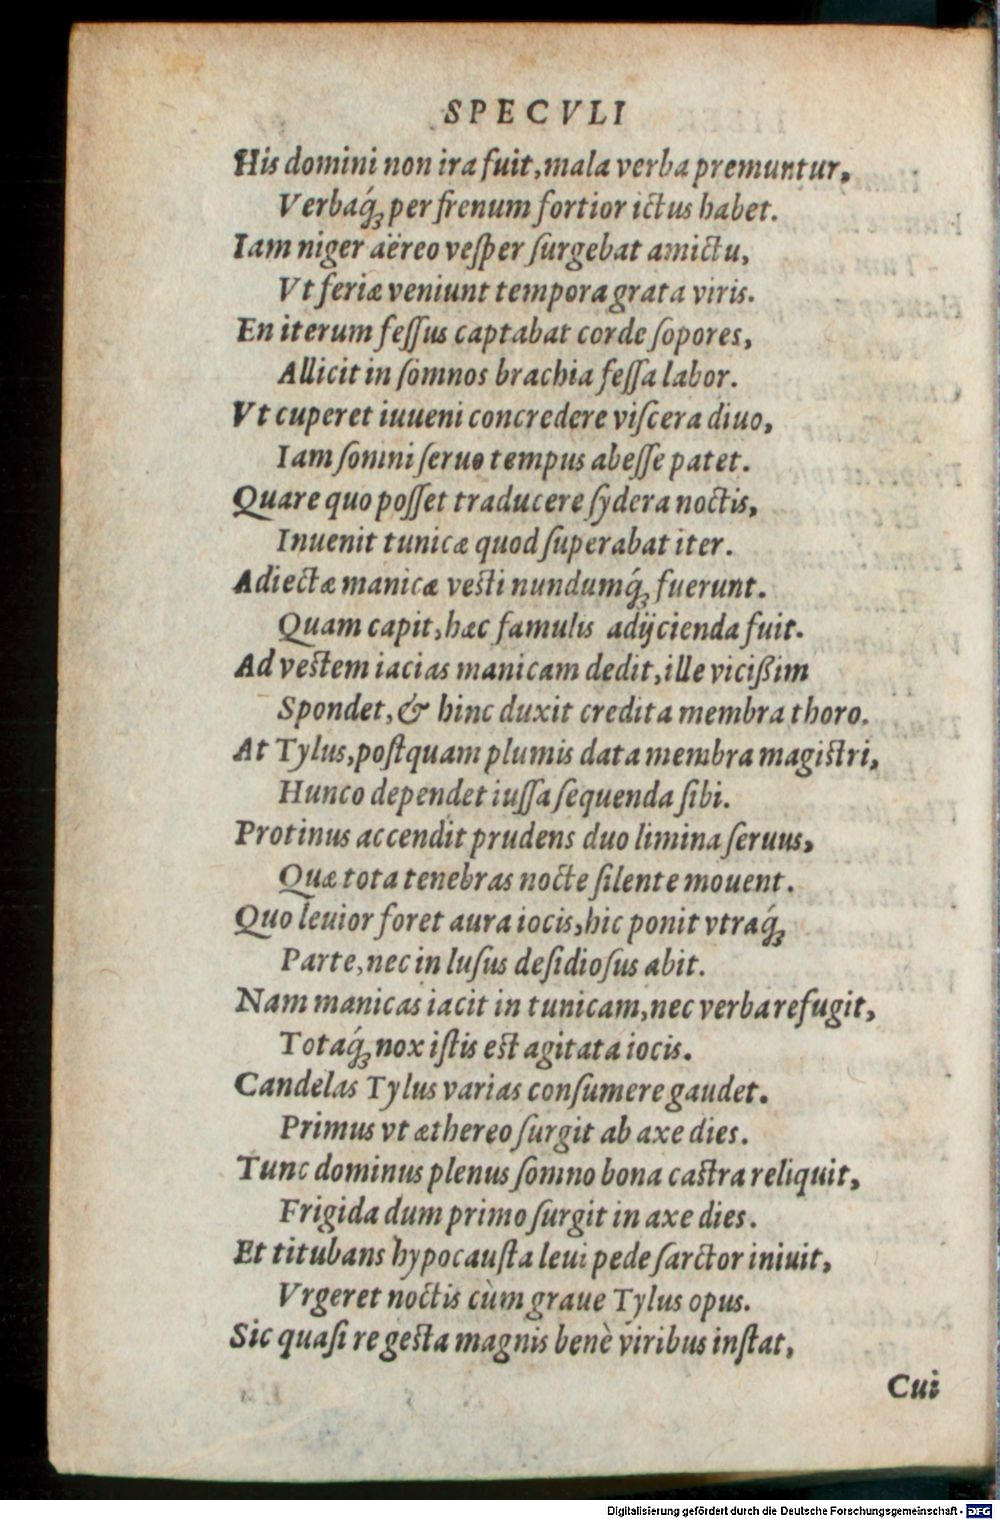 SPECVLI
His domini non ira fuit, mala verba premuntur,
Verbaq́; per frenum fortior ictus habet.
Iam niger aëreo veſper ſurgebat amictu,
Vt feriæ veniunt tempora grata viris.
En iterum feſſus captabat corde ſopores,
Allicit in ſomnos brachia feſſa labor.
Vt cuperet iuueni concredere viſcera diuo,
Iam ſomni ſeruo tempus abeſſe patet.
Quare quo poſſet traducere ſydera noctis,
Inuenit tunicæ quod ſuperabat iter.
Adiectæ manicæ veſti nundumq́; fuerunt.
Quam capit, hæc famulis adijcienda fuit.
Ad veſtem iacias manicam dedit, ille viciſsim
Spondet, & hinc duxit credita membra thoro.
At Tylus, poſtquam plumis data membra magiſtri,
Hunco dependet iuſſa ſequenda ſibi.
Protinus accendit prudens duo limina ſeruus,
Quæ tota tenebras nocte ſilente mouent.
Quo leuior foret aura iocis, hic ponit vtraq́;
Parte, nec in luſus deſidioſus abit.
Nam manicas iacit in tunicam, nec verba refugit,
Totaq́; nox iſtis eſt agitata iocis.
Candelas Tylus varias conſumere gaudet.
Primus vt æthereo ſurgit ab axe dies.
Tunc dominus plenus ſomno bona caſtra reliquit,
Frigida dum primo ſurgit in axe dies.
Et titubans hypocauſta leui pede ſarctor iniuit,
Vrgeret noctis cùm graue Tylus opus.
Sic quaſi re geſta magnis benè viribus inſtat,
Cui
Digitalisierung gefördert durch die Deutsche Forschungsgemeinschaft - DFG